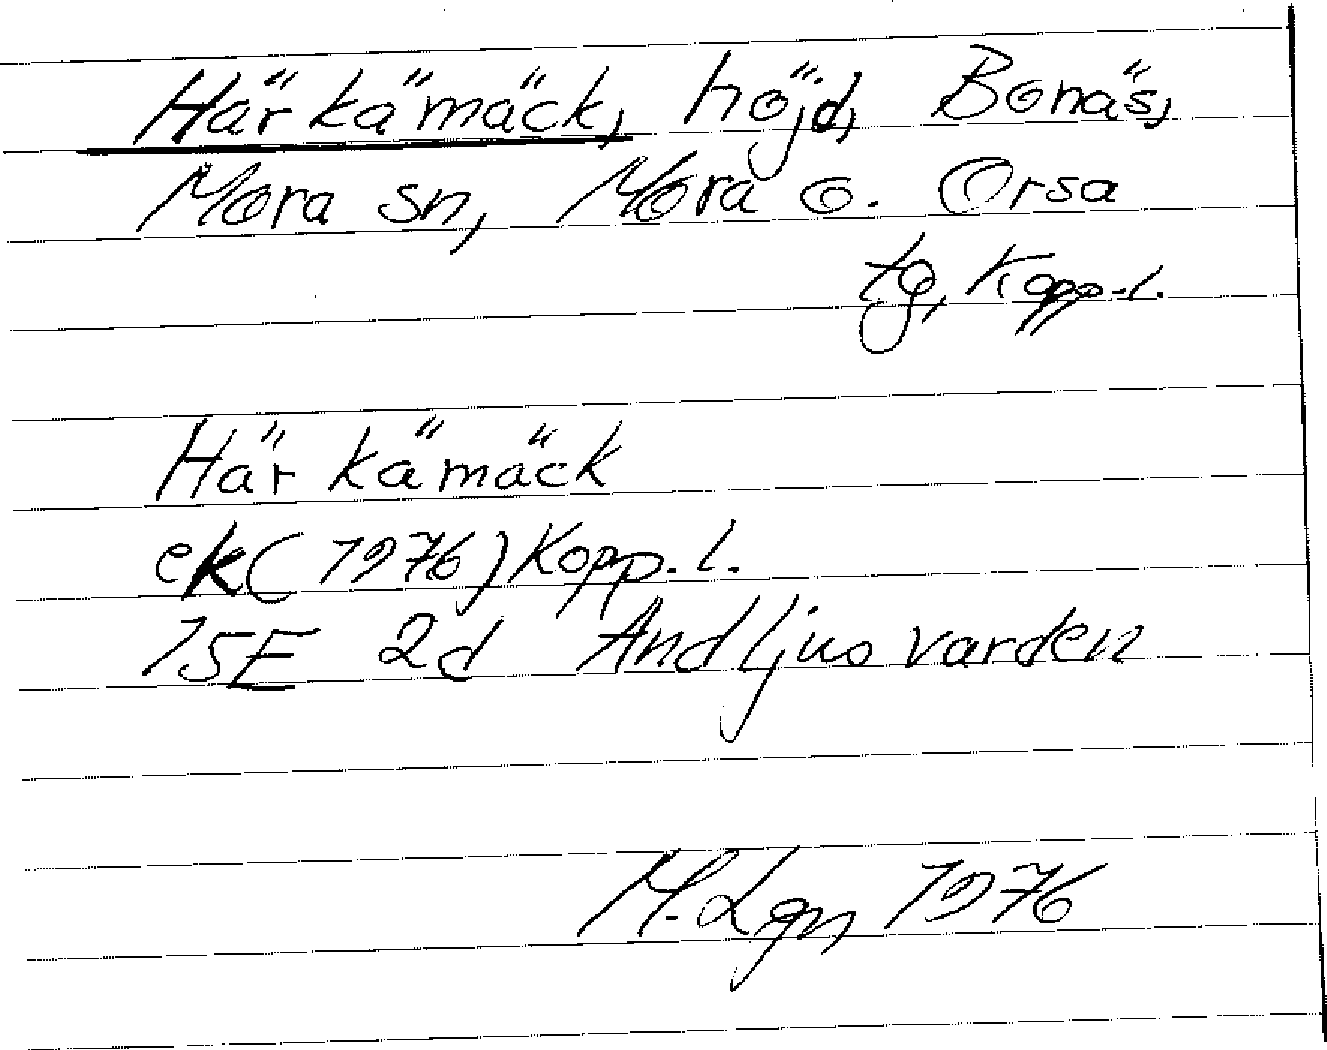 Härkämäck, höjd, Bonäs,
Mora sn, Mora o. Orsa
tg, Kopp.l.
Härkämäck
ek (1976) Kopp.l.
15E 2d Andljusvarden
M. Lgn 1976